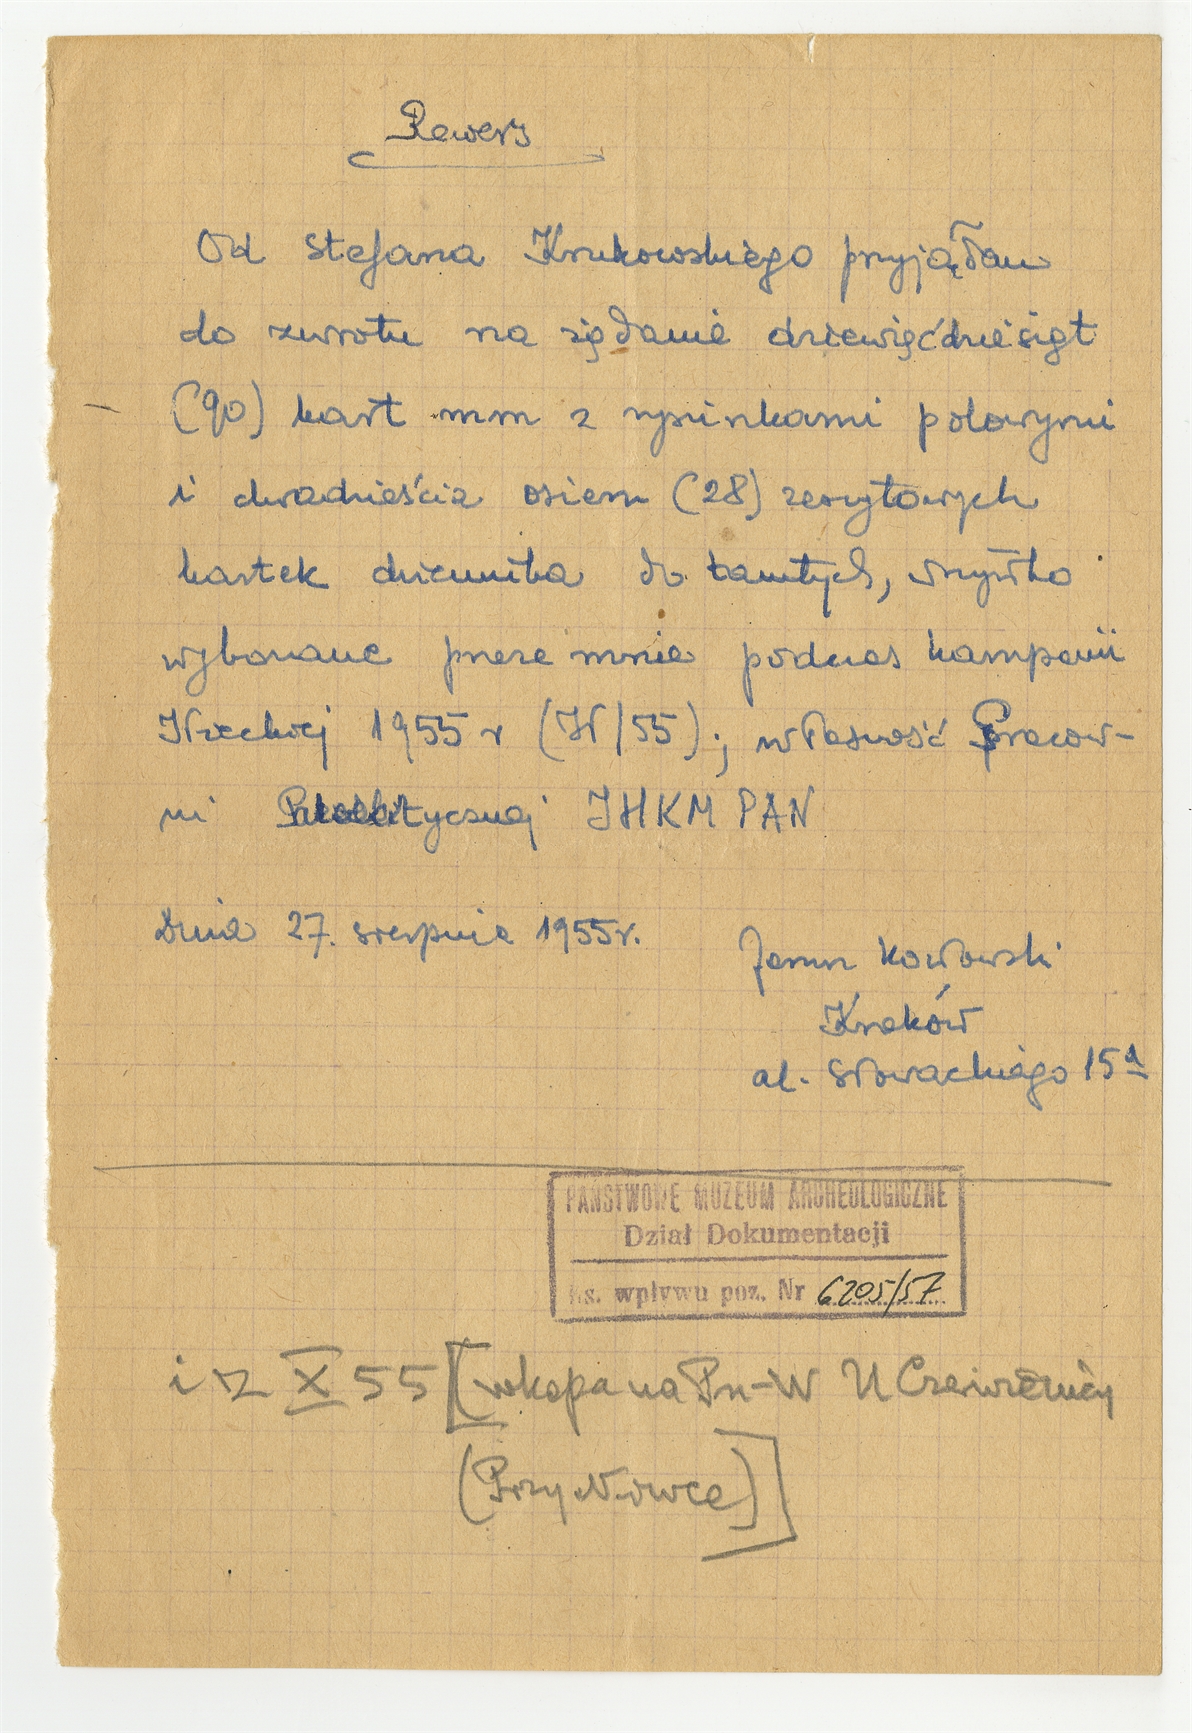 Rewers
Od Stefana Krukowskiego przyjąłam
do zwrotu na żądanie dziewięćdziesiąt
(90) kart mm z rysunkami polowymi
i dwadzieścia osiem (28) zeszytowych
kartek dziennika do tamtych, wszystko
wykonane przeze mnie podczas kampanii
1955 r (N/55); własność Pracow-
ni Paleolitycznej IHKM PAN
Dnia 27. sierpnia 1955r.
Kraków
al. Słowackiego 15a
PAŃSTWOWE MUZEUM ARCHEOLOGICZNE
Dział Dokumentacji
Ks. wpływu poz. Nr 6205/57
i z X 55 [wkopa na Pn-W